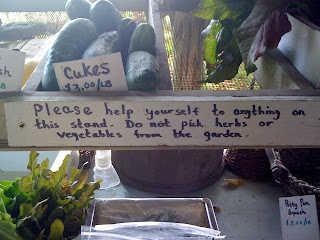 sh
/LB
Cukes
$3.00/LB
Please help yourself to anything on
this stand. Do not pick herbs or
vegetables from the garden.
Patty Pan
Squash
$3.00/LB